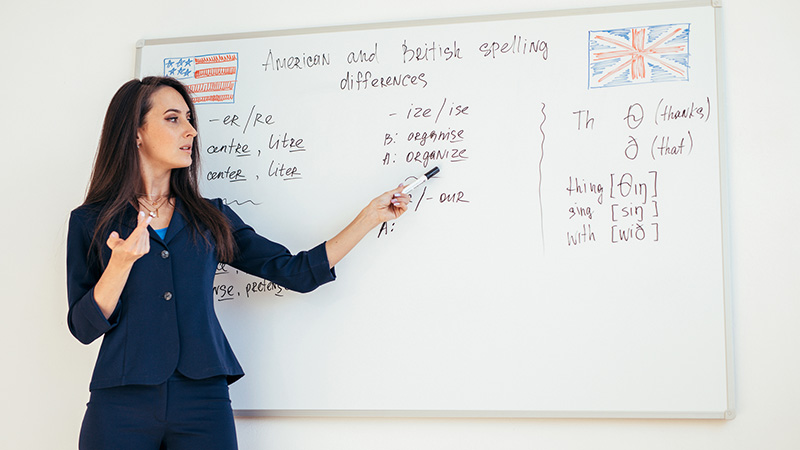 American and British spelling
differences
- er/re
centre, litre
center, liter
- ize/ise
B: organise
A: organize
/-our
A:
Th θ (thanks)
ð (that)
thing [θıŋ]
sing [siŋ]
with [wið]